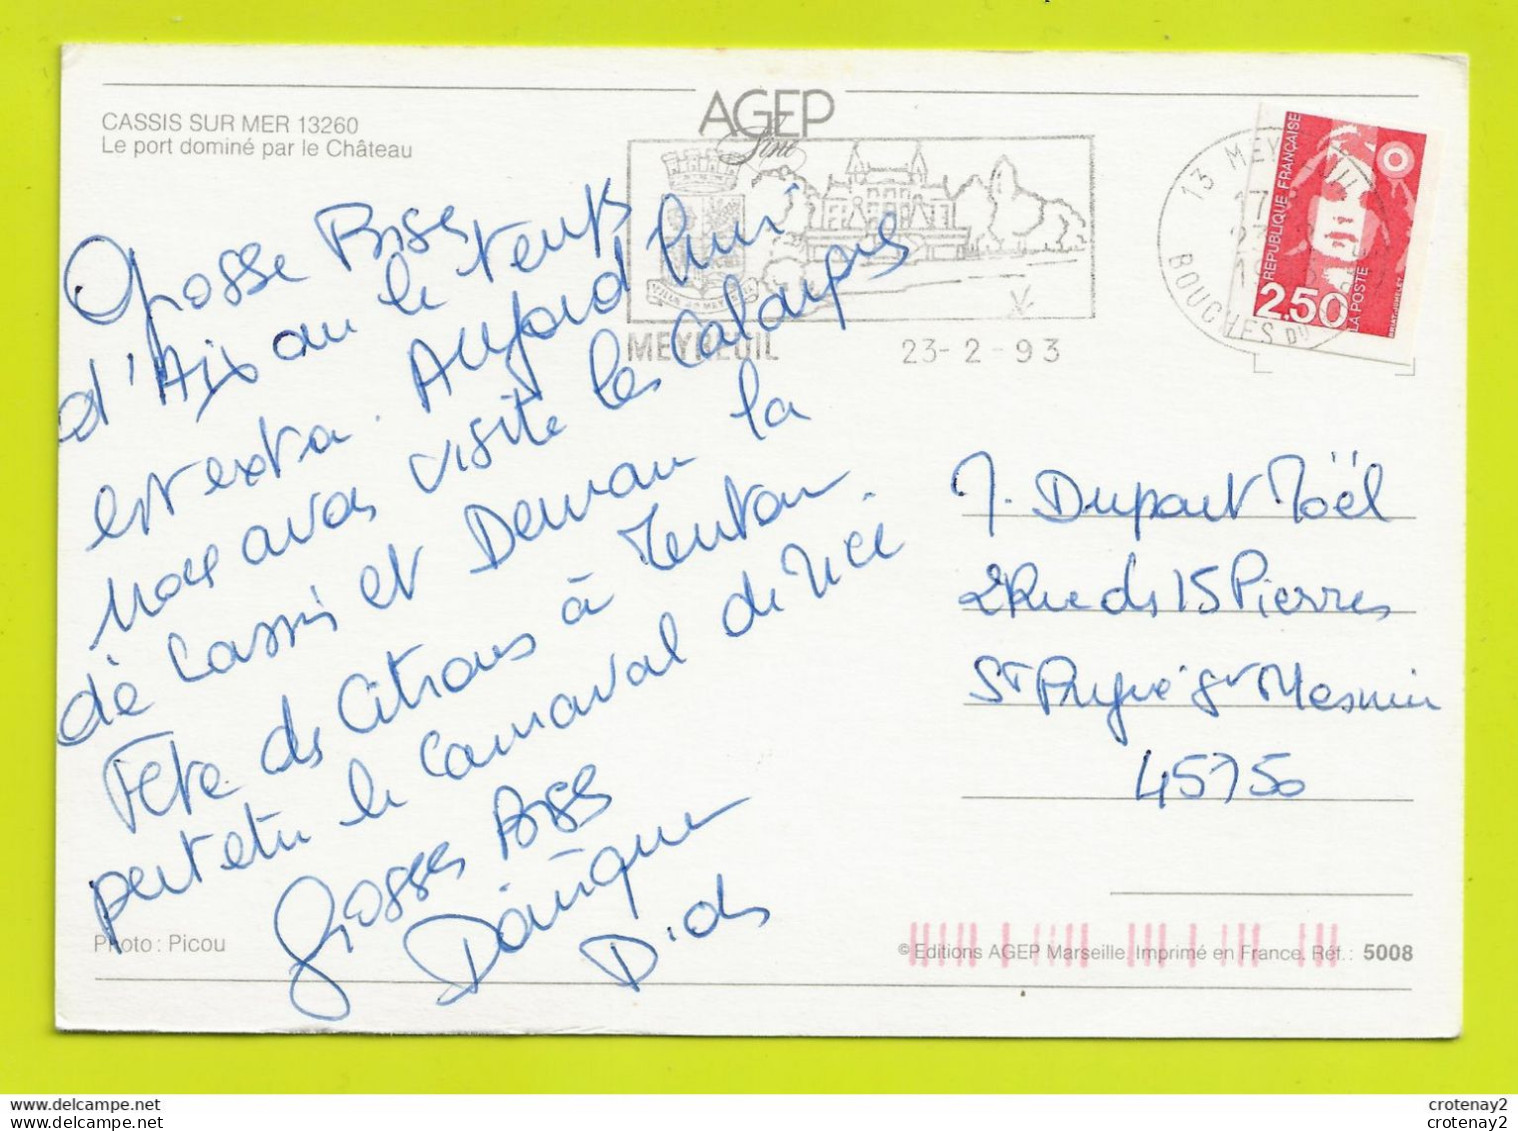 CASSIS SUR MER 13260
Le port dominé par le Château
AGEP
MEYREUIL
23-2-93
13 MEY
BOUCHES DU
RÉPUBLIQUE FRANÇAISE
2,50
LA POSTE
Grosse Bises
d'Aix ou le temps
est extra. Aujourd'hui
nous avons visité les Calanques
de Cassis et Demain la
Fête des Citrons à Menton.
peut etre le Carnaval de Nice
Grosses Bises
Dominique
Dids
M. Dupont Joël
2 Rue des 15 Pierres
St Pryvé St Mesmin
45750
Photo : Picou
© Editions AGEP Marseille. Imprimé en France. Réf. : 5008
crotenay2
crotenay2
crotenay2
crotenay2